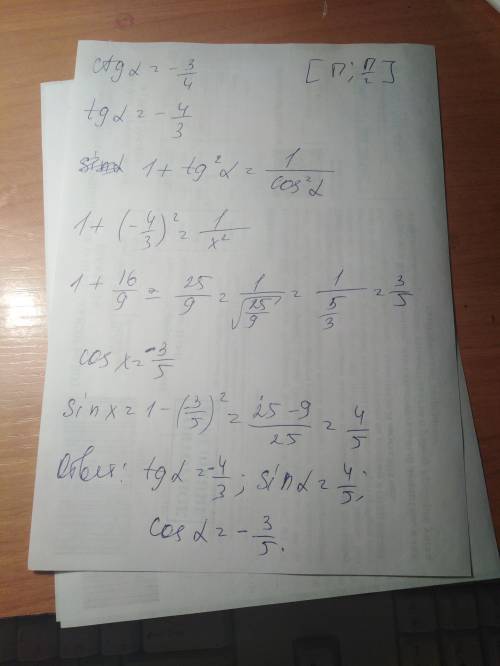 ctg α = -3/4 [π; π/2]
tg α = -4/3
1 + tg²α = 1/cos²α
1 + (-4/3)² = 1/x²
1 + 16/9 = 25/9 = 1/√(25/9) = 1/(5/3) = 3/5
cos x = -3/5
sin x = 1 - (3/5)² = (25-9)/25 = 4/5
Ответ: tg α = -4/3; sin α = 4/5;
cos α = -3/5.